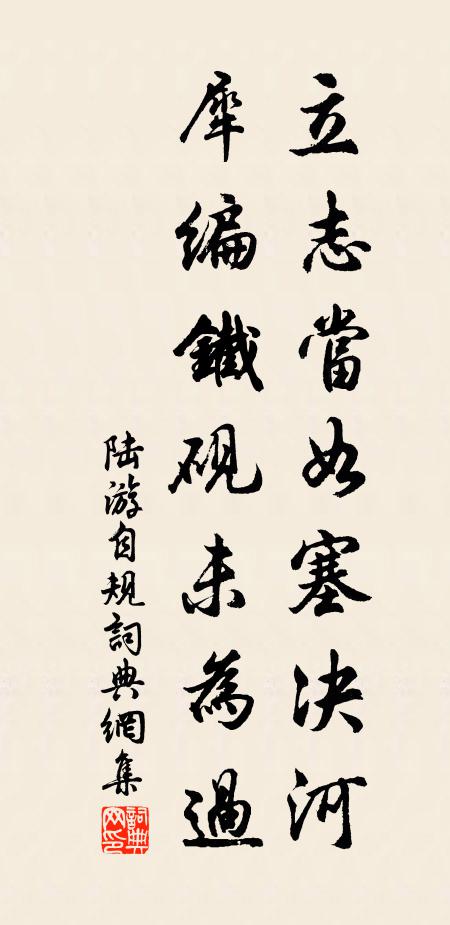 立志當如塞決河
犀編鐵硯未為過
陆游自规詞典網集
詞典網印